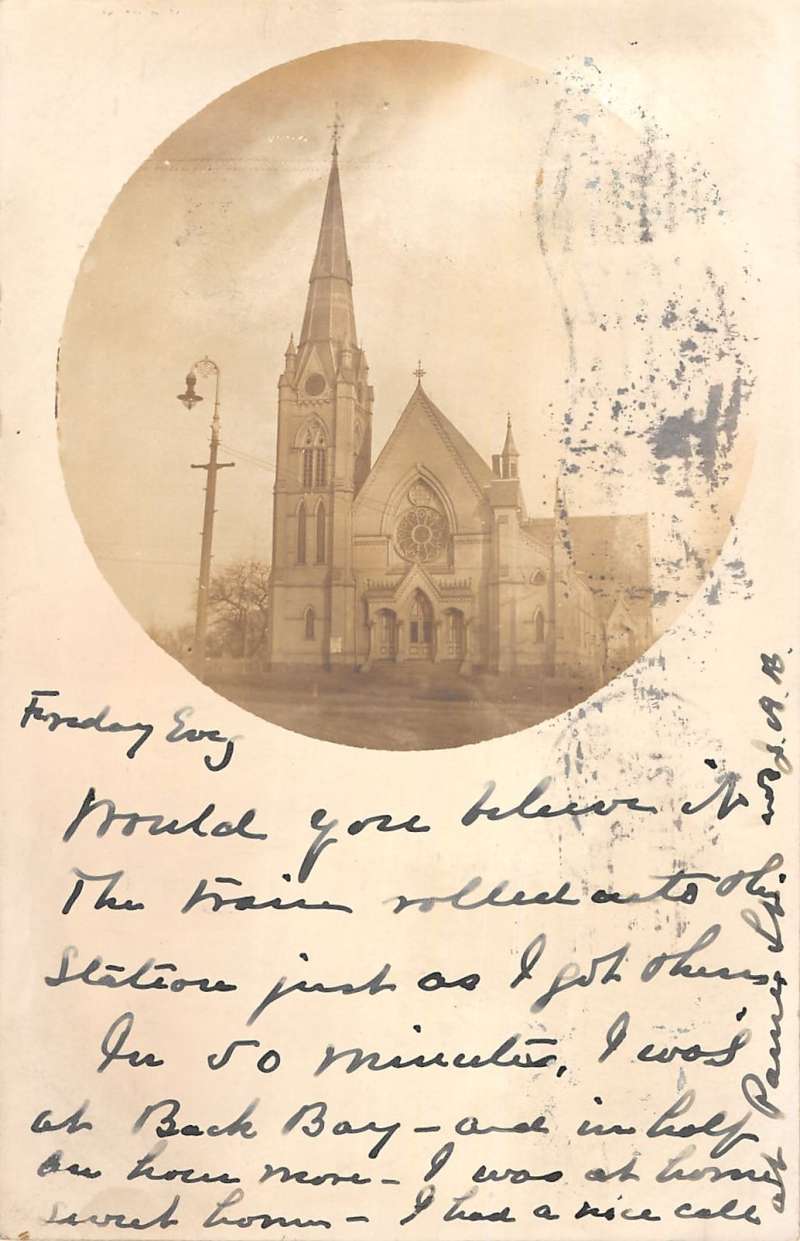 Fursday Eveg
Would you believe it
The train rolled into the
Station just as I got there
In 50 minutes, I was
at Back Bay – and in half
an hour more – I was at home
sweet home – I had a nice call
at